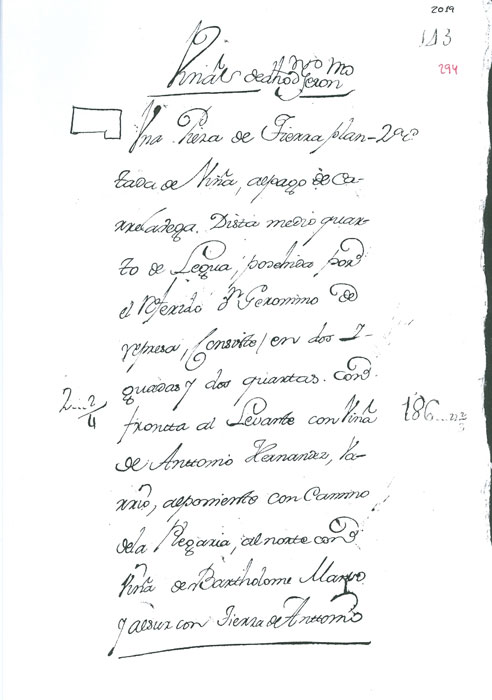 2019
113
294
Viñas de dho Dn Geron.mo
Una Pieza de Tierra plan- 2as
tada de Viña, al pago de Ca-
rrelavega. Dista medio quar-
to de Legua, posehida por
el Referido Dn Geronimo de
represa, Consiste en dos I-
guadas y dos quartas. Con
2...2/4 frontta al Levante con Viña 186
de Anttonio Hernandez, Va-
rrio, al poniente con Camino
de la Regaxia, al norte con
Viña de Bartholome Marvo
y al sur con Tierra de Anttonio